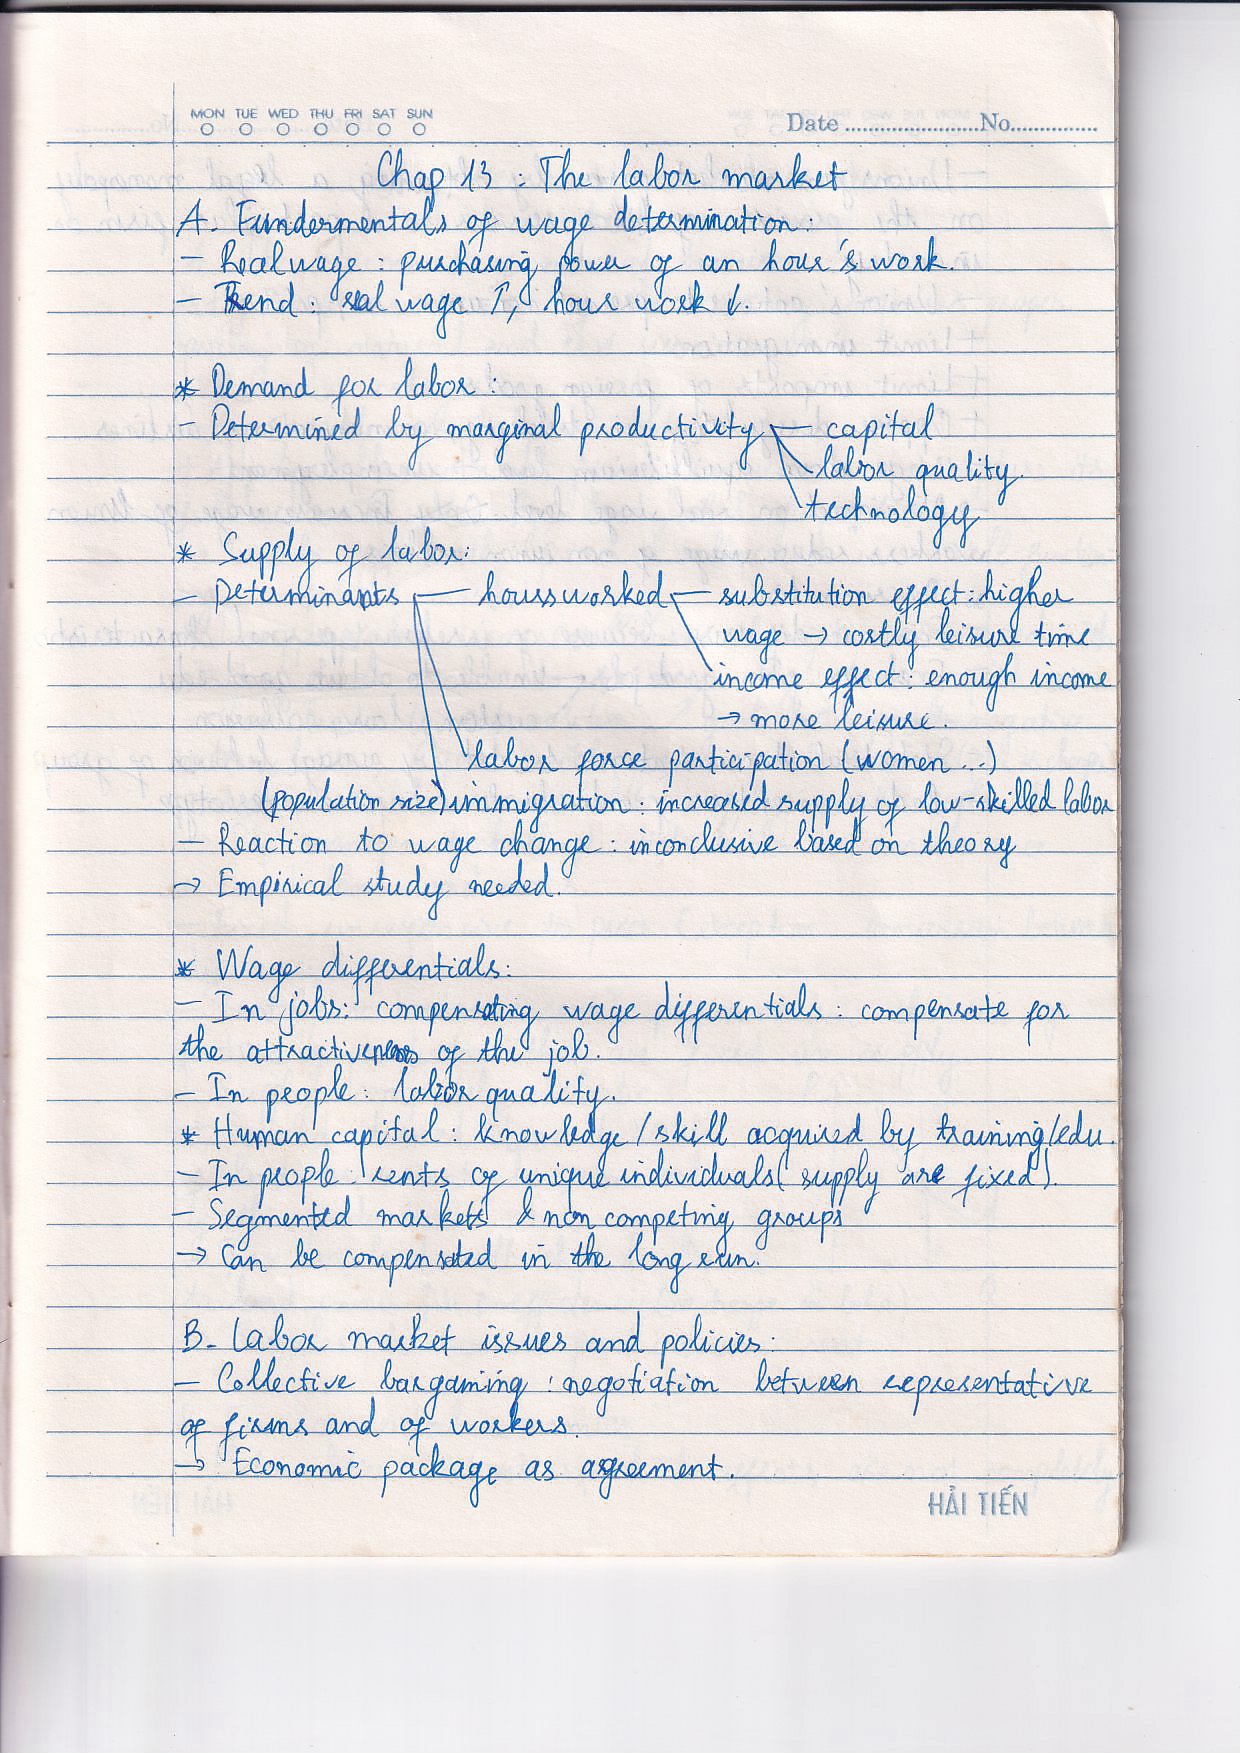 MON TUE WED THU FRI SAT SUN
Date ........................No...............
Chap 13 : The labor market
A. Fundermentals of wage determination:
- Real wage : purchasing power of an hour's work.
- Trend : real wage ↑, hour work ↓.
* Demand for labor :
- Determined by marginal productivity — capital
labor quality.
technology
* Supply of labor:
- Determinants — hours worked — substitution effect : higher
wage → costly leisure time
income effect : enough income
→ more leisure.
labor force participation (women ...)
(population size) immigration : increased supply of low-skilled labor
- Reaction to wage change : inconclusive based on theory
→ Empirical study needed.
* Wage differentials:
- In jobs: compensating wage differentials : compensate for
the attractiveness of the job.
- In people : labor quality.
* Human capital : knowledge / skill acquired by training/edu.
- In people : rents of unique individuals ( supply are fixed ).
- Segmented markets & non competing groups
→ Can be compensated in the long run.
B- Labor market issues and policies:
- Collective bargaming : negotiation between representative
of firms and of workers.
→ Economic package as agreement.
HẢI TIẾN